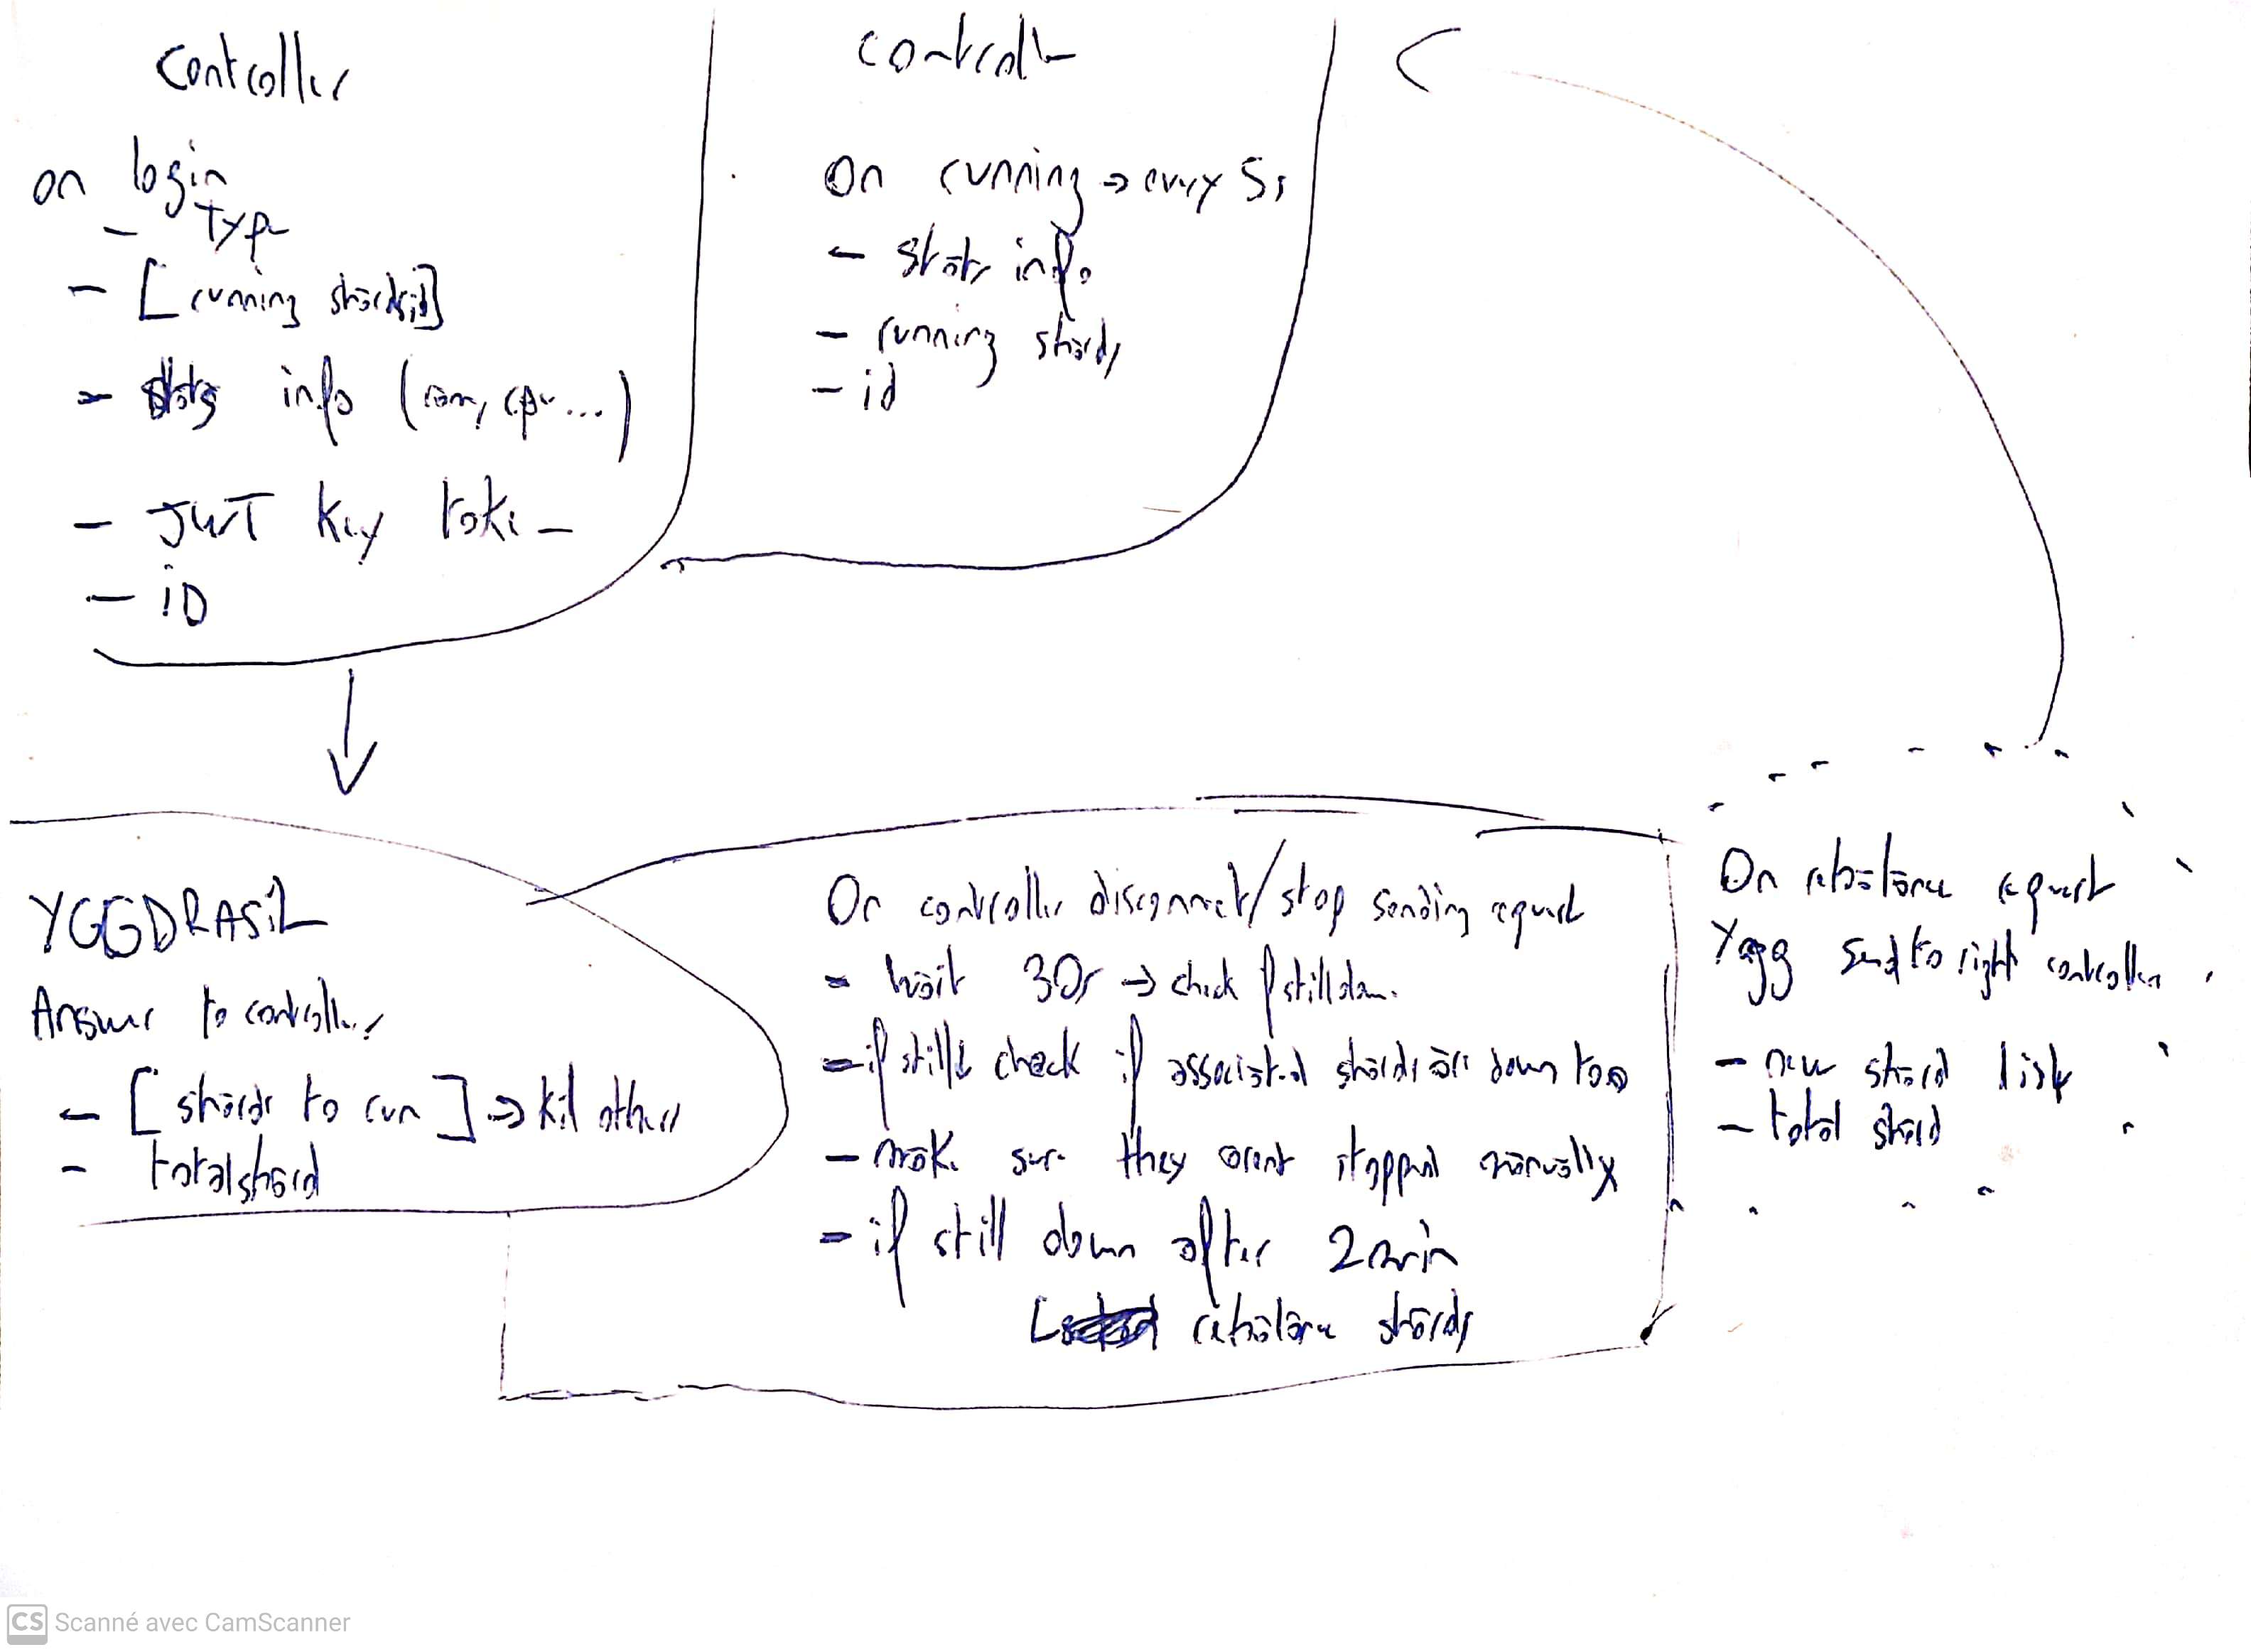 Controller
on login
- Type
- [running shardsid]
- stats info (ram, cpu...)
- JWT Key token
- iD
controller
On running → every 5s
- stats info
- running shards
- id
YGGDRASiL
Answer to controller
- [shards to run] → kill others
- totalshard
On controller disconnect/stop sending request
- wait 30s → check if still down
- if still check if associated shards are down too
- make sure they arent stopped manually
- if still down after 2min
rebalance shards
On rebalance request
Ygg send to right controller
- new shard list
- total shard
CS Scanné avec CamScanner